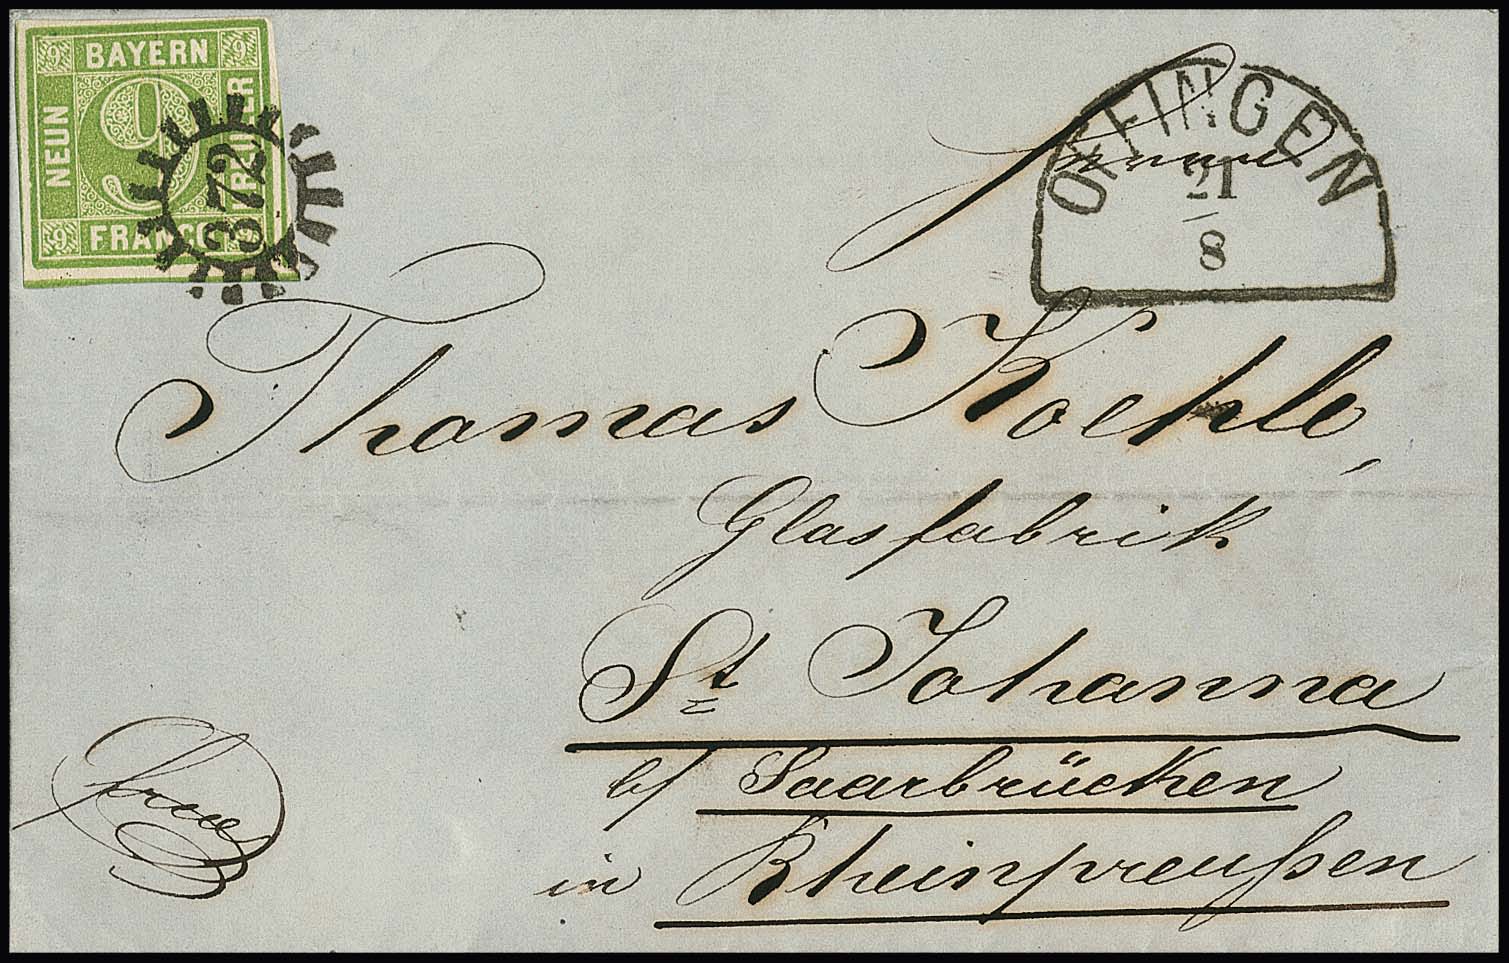 9 BAYERN 9
NEUN
9
KREUZER
9 FRANCO 9
372
OFFINGEN
21
8
Thomas Koehle,
Glasfabrik
St Johanna
b/ Saarbrücken
in Rheinpreußen
franco